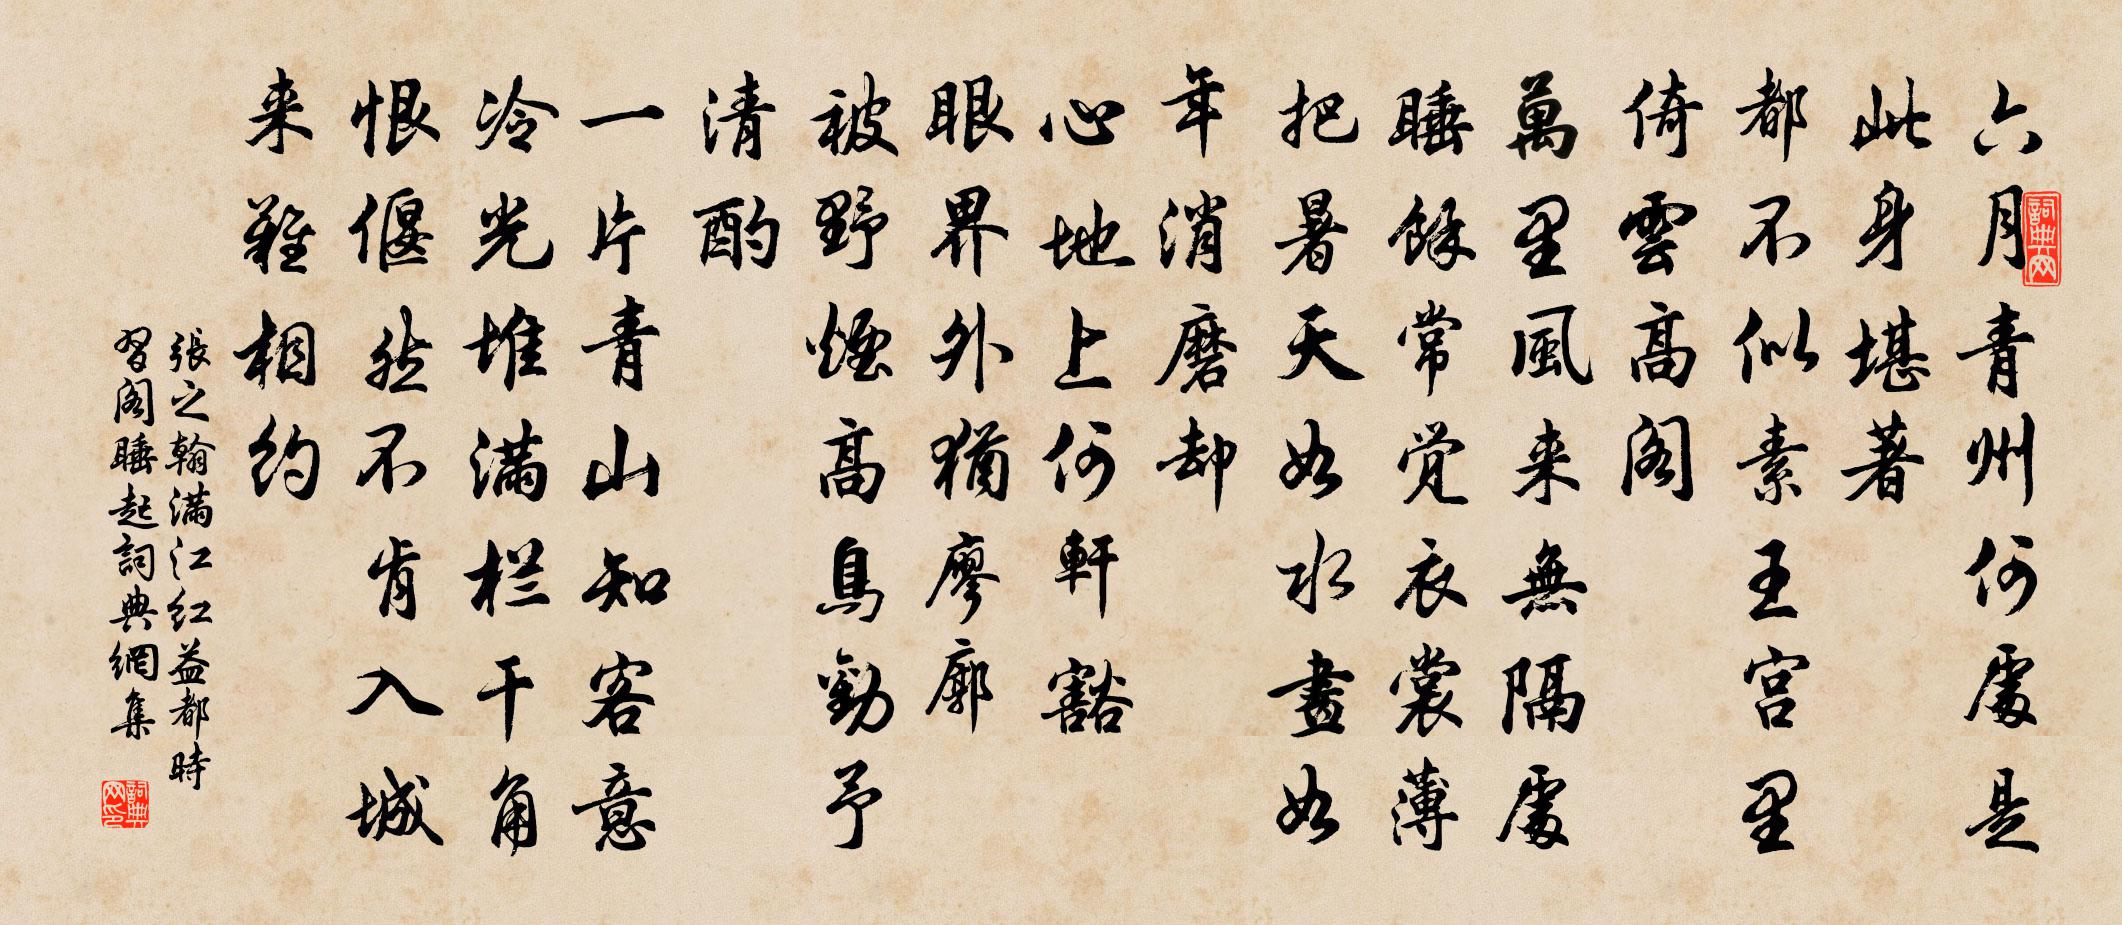 六月青州何處是
此身堪著
都不似素王宫里
倚雲高阁
萬里風来無隔處
睡餘常觉衣裳薄
把暑天如水晝如
年消磨却
心地上何軒豁
眼界外猶廖廓
被野煙高鳥勸予
清酌
一片青山知客意
冷光堆满栏干角
恨偃然不肯入城
来難相约
張之翰满江红益都時
習阁睡起詞典網集
詞典网
詞典网印